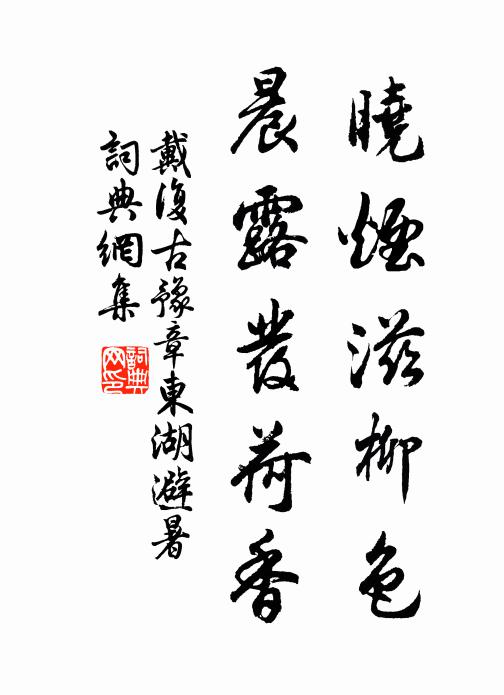 曉煙滋柳色
晨露發荷香
戴復古豫章東湖避暑
詞典網集
詞典网印